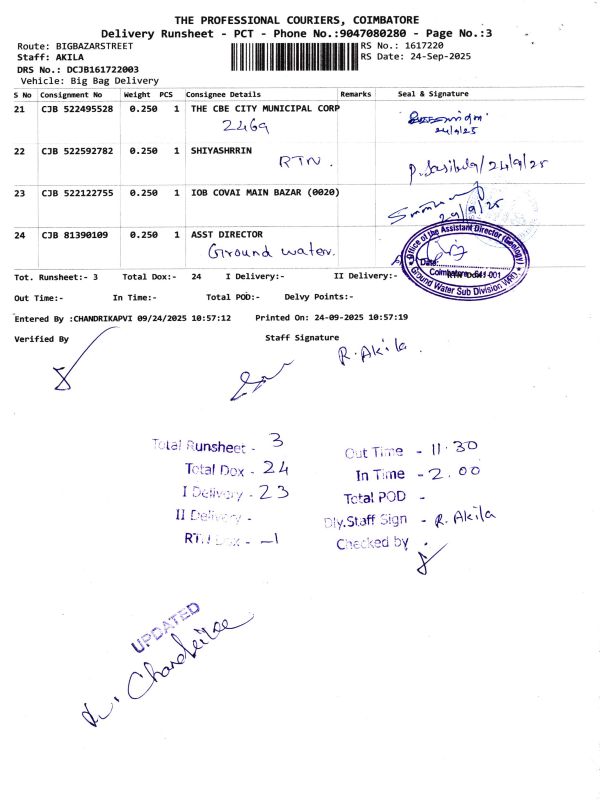 THE PROFESSIONAL COURIERS, COIMBATORE
Delivery Runsheet - PCT - Phone No.:9047080280 - Page No.:3
Route: BIGBAZARSTREET
RS No.: 1617220
Staff: AKILA
RS Date: 24-Sep-2025
DRS No.: DCJB161722003
Vehicle: Big Bag Delivery
S No Consignment No Weight PCS Consignee Details Remarks Seal & Signature
21 CJB 522495528 0.250 1 THE CBE CITY MUNICIPAL CORP
2469
24/9/25
22 CJB 522592782 0.250 1 SHIYASHRRIN
RTN.
24/9/25
23 CJB 522122755 0.250 1 IOB COVAI MAIN BAZAR (0020)
24/9/25
24 CJB 81390109 0.250 1 ASST DIRECTOR
Ground water.
Office of the Assistant Director (Geology)
Date:
Coimbatore - 641 001
Ground Water Sub Division WRD
Tot. Runsheet:- 3 Total Dox:- 24 I Delivery:- II Delivery:-
Out Time:- In Time:- Total POD:- Delvy Points:-
Entered By :CHANDRIKAPVI 09/24/2025 10:57:12 Printed On: 24-09-2025 10:57:19
Verified By Staff Signature
R. Akila.
Total Runsheet - 3
Out Time - 11.30
Total Dox - 24
In Time - 2.00
I Delivery - 23
Total POD -
II Delivery -
Dly.Staff Sign - R. Akila
RTN Dox - 1
Checked by -
UPDATED